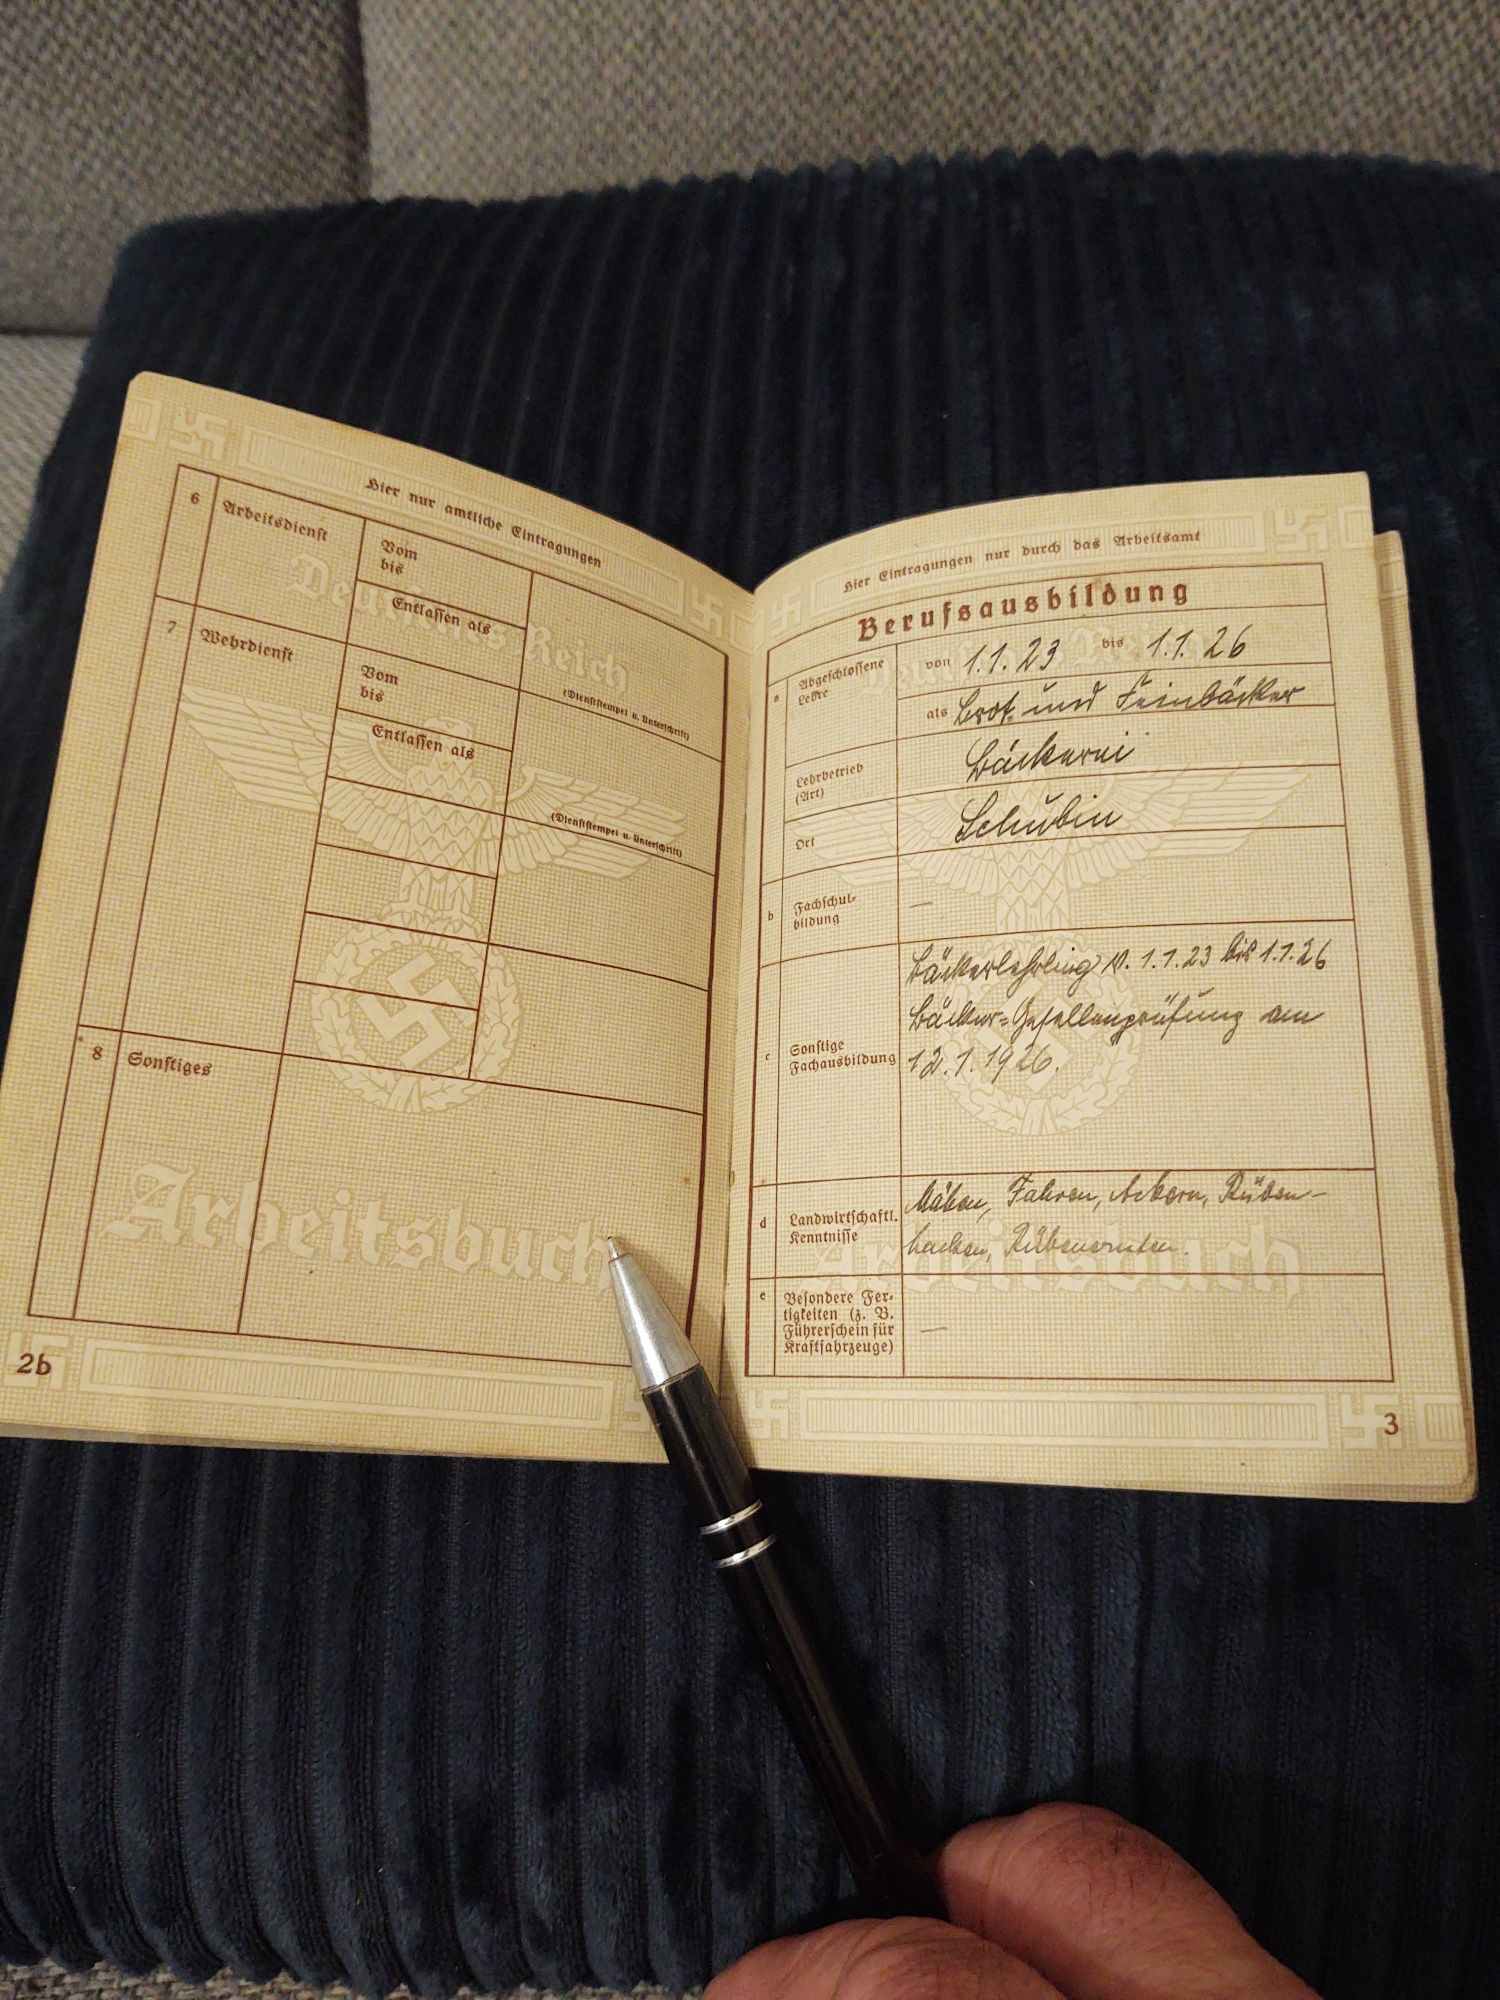 Hier nur amtliche Eintragungen
6 Arbeitsdienst
Vom
bis
Entlassen als
(Dienststempel u. Unterschrift)
7 Wehrdienst
Vom
bis
Entlassen als
(Dienststempel u. Unterschrift)
8 Sonstiges
Deutsches Reich
Arbeitsbuch
2b
Hier Eintragungen nur durch das Arbeitsamt
Berufsausbildung
a Abgeschlossene
Lehre
von 1.1.23 bis 1.1.26
als Brot- und Feinbäcker
Lehrbetrieb
(Art)
Bäckerei
Ort Schubin
b Fachschul-
bildung
—
c Sonstige
Fachausbildung
Bäckerlehrling v. 1.1.23 bis 1.1.26
Bäcker=Gesellenprüfung am
12.1.1926.
d Landwirtschaftl.
Kenntnisse
Mähen, Fahren, Ackern, Rüben-
hacken, Rübenernten.
e Besondere Fer-
tigkeiten (z. B.
Führerschein für
Kraftfahrzeuge)
—
Deutsches Reich
Arbeitsbuch
3